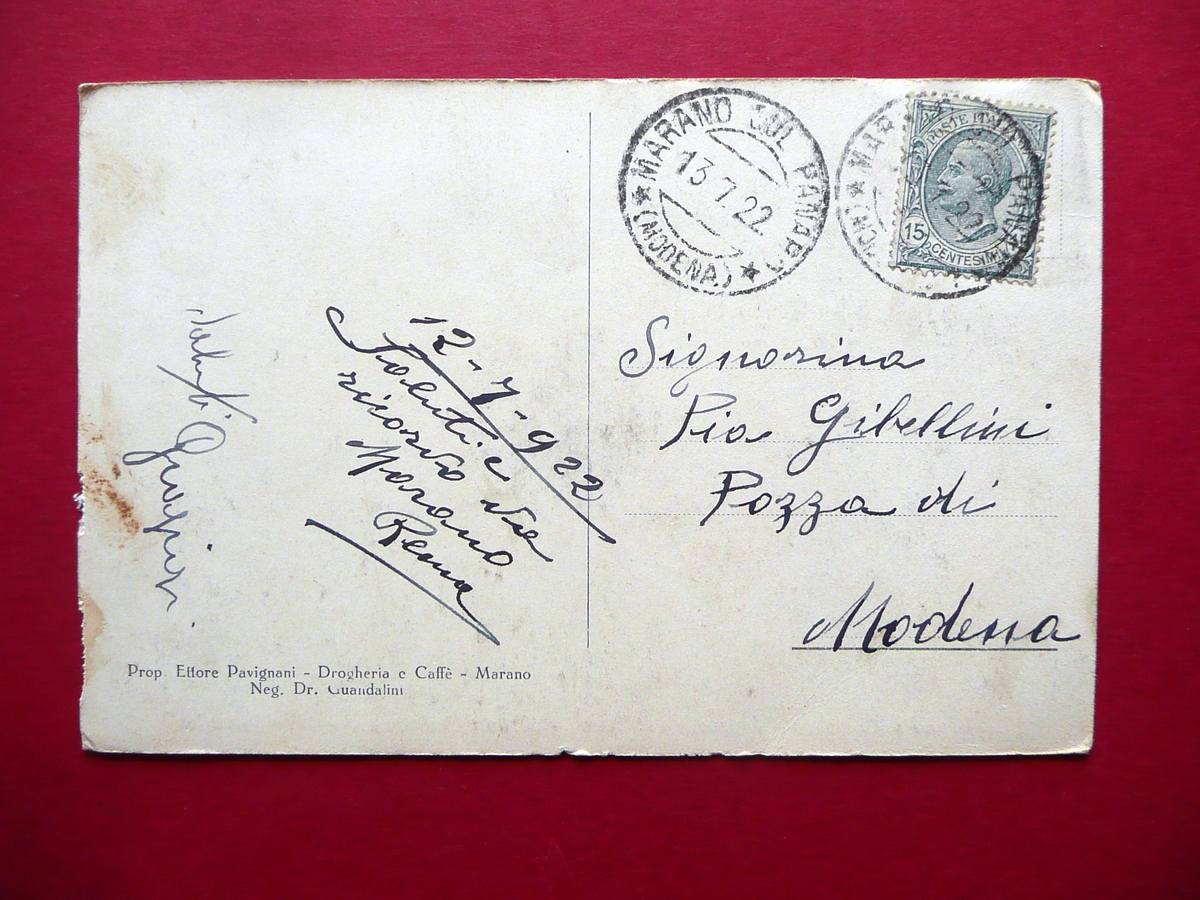 MARANO SUL PANARO
13.7.22
(MODENA)
POSTE ITALIANE
15 CENTESIMI
12-7-922
Saluti e
ricordo da
Marano
Rema
Saluti
Signorina
Pia Gibellini
Pozza di
Modena
Prop. Ettore Pavignani - Drogheria e Caffè - Marano
Neg. Dr. Guandalini